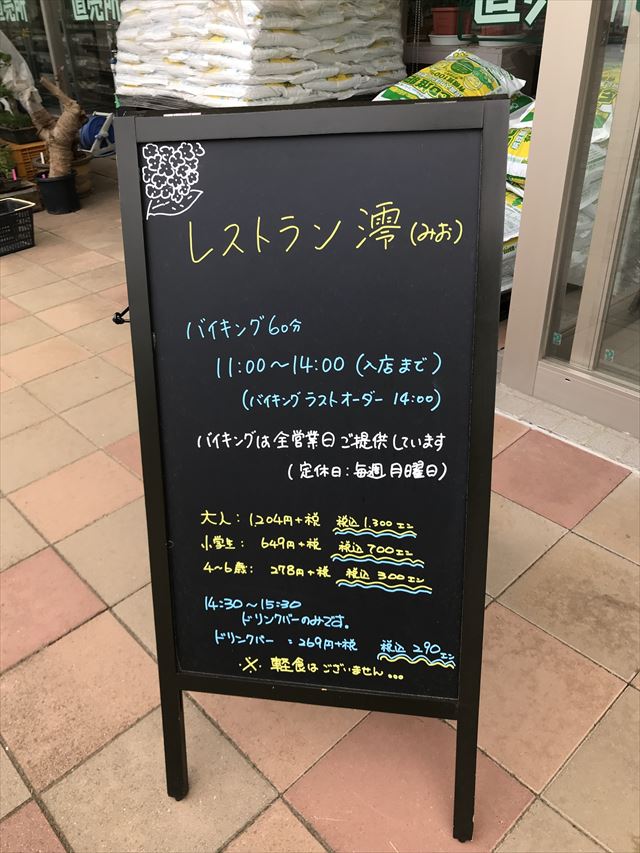 直売所
直売所
レストラン 澪(みお)
バイキング60分
11:00〜14:00 (入店まで)
(バイキングラストオーダー 14:00)
バイキングは全営業日ご提供しています
(定休日:毎週月曜日)
大人: 1204円+税 税込1.300エン
小学生: 649円+税 税込700エン
4〜6歳: 278円+税 税込300エン
14:30〜15:30
ドリンクバーのみです。
ドリンクバー :269円+税 税込290エン
※ 軽食はございません...